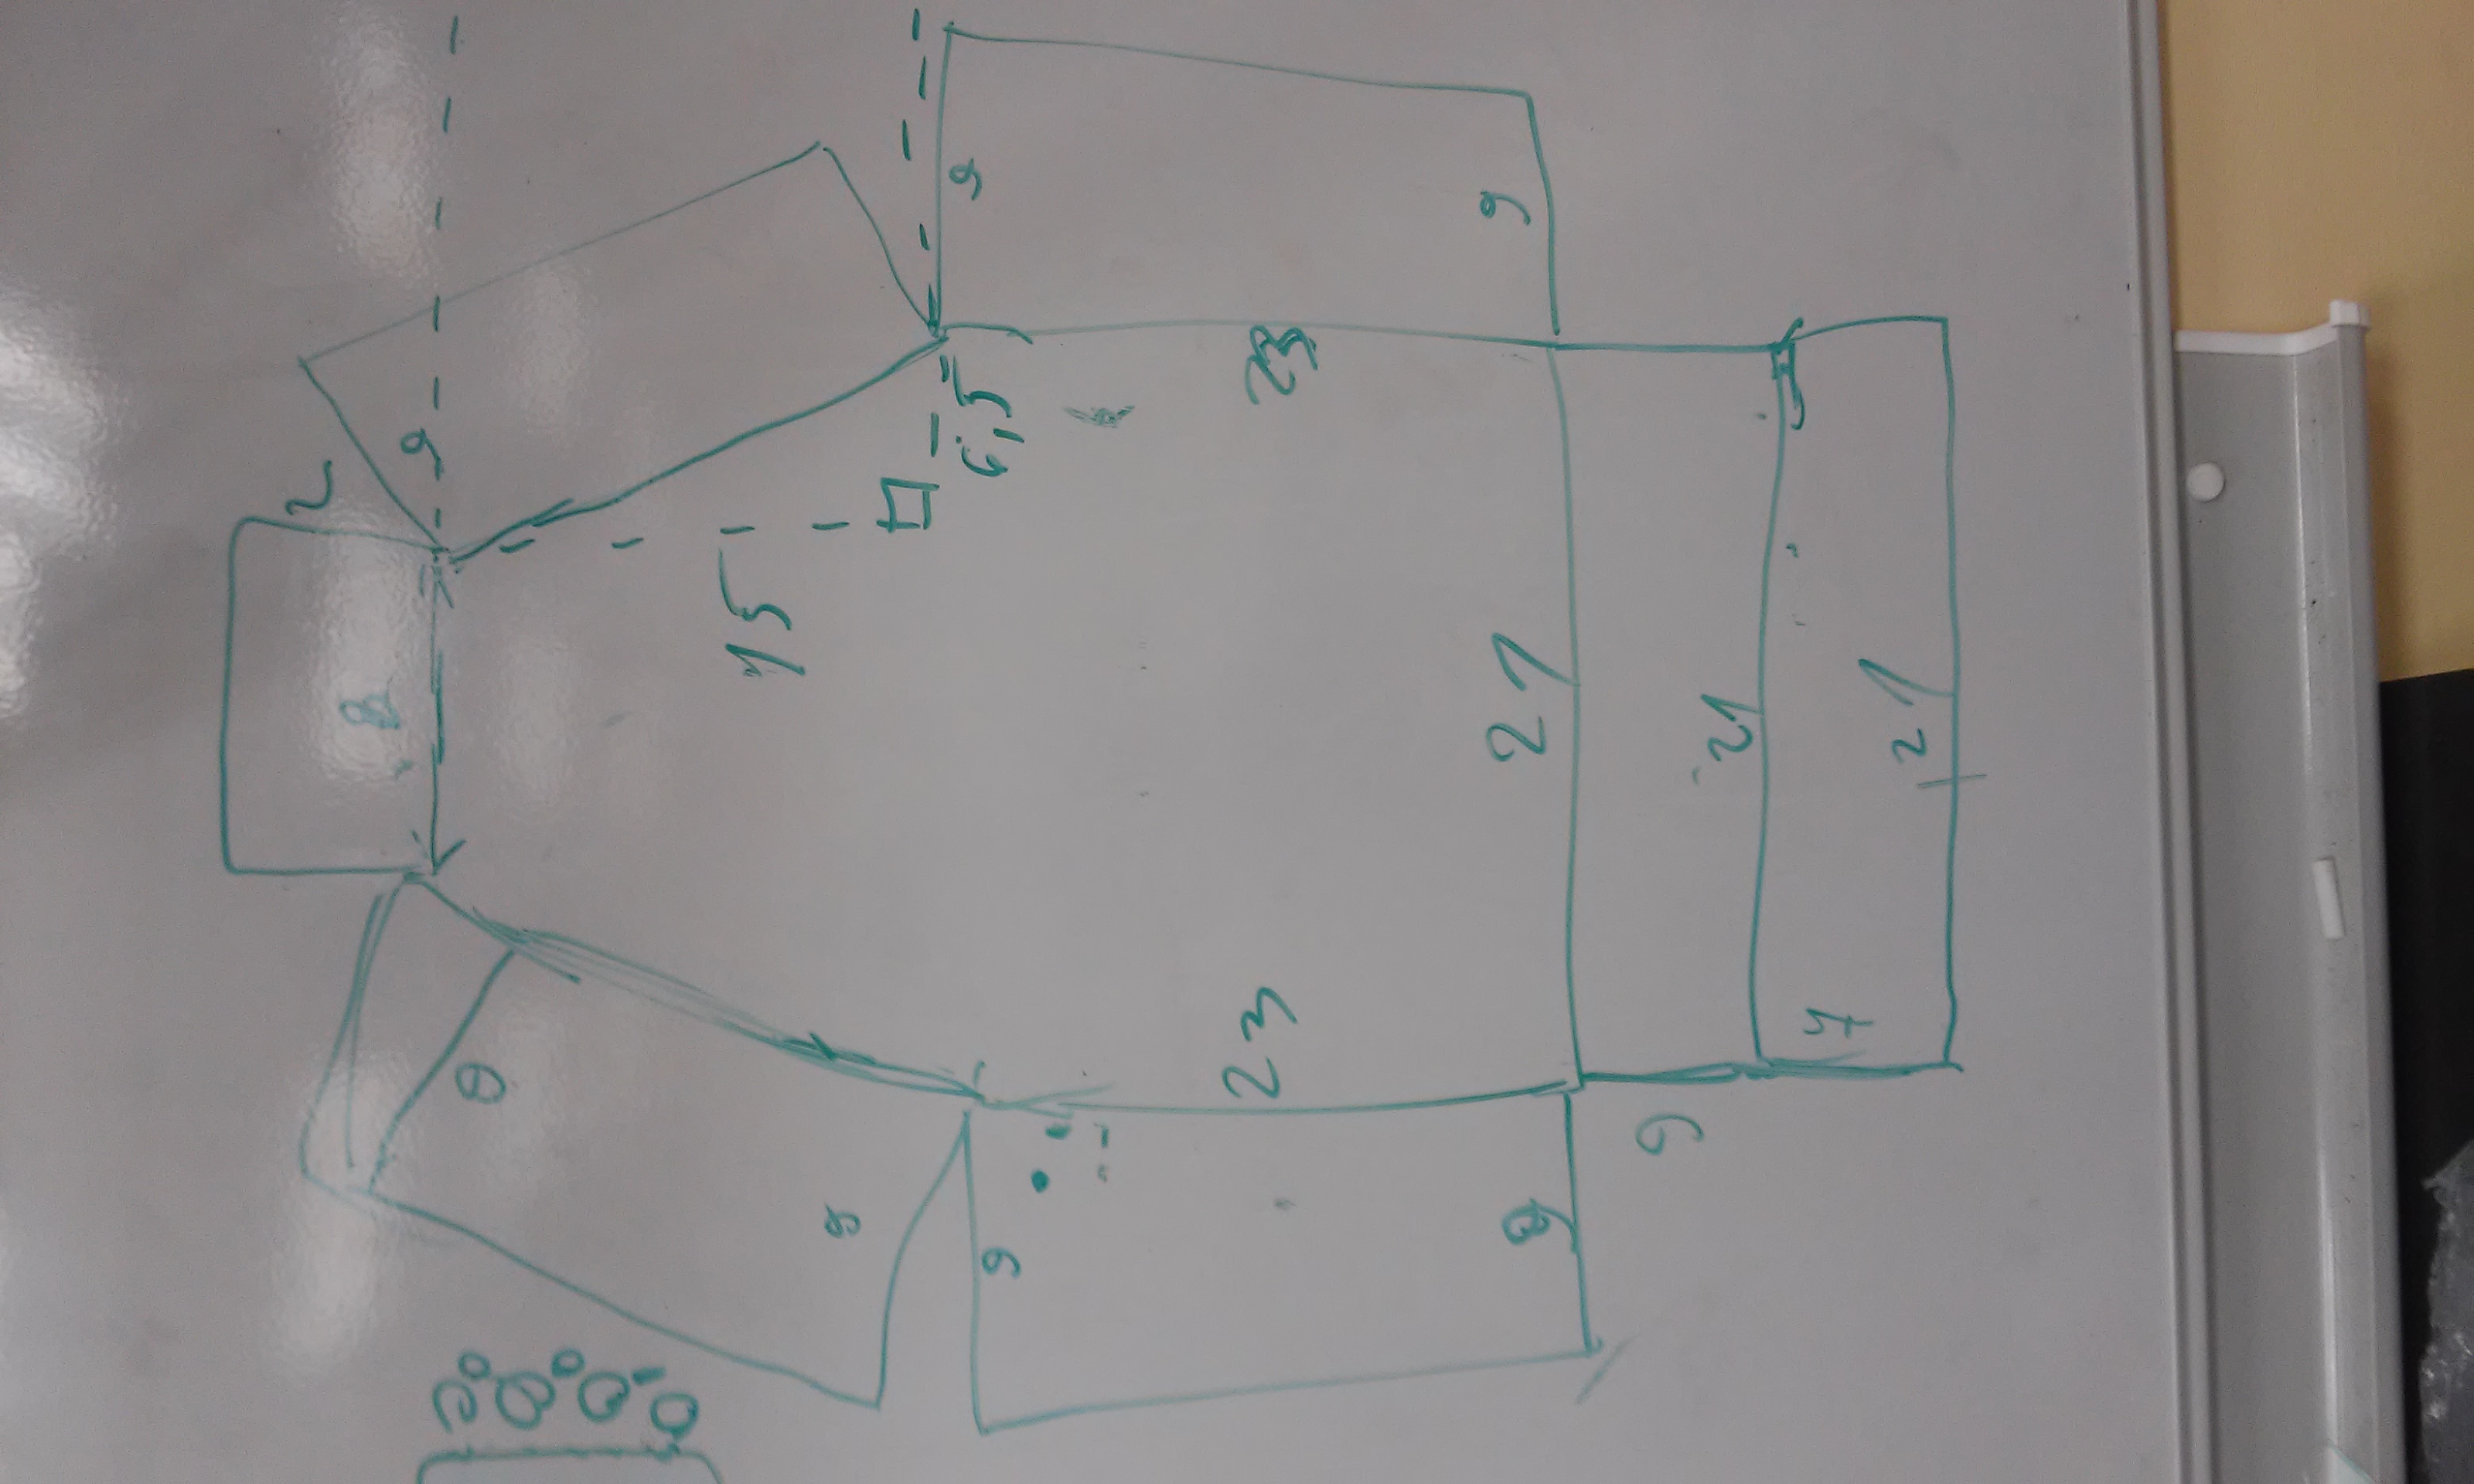 2
8
9
9
15
9
6,5
9
9
23
23
21
9
9
9
21
7
21